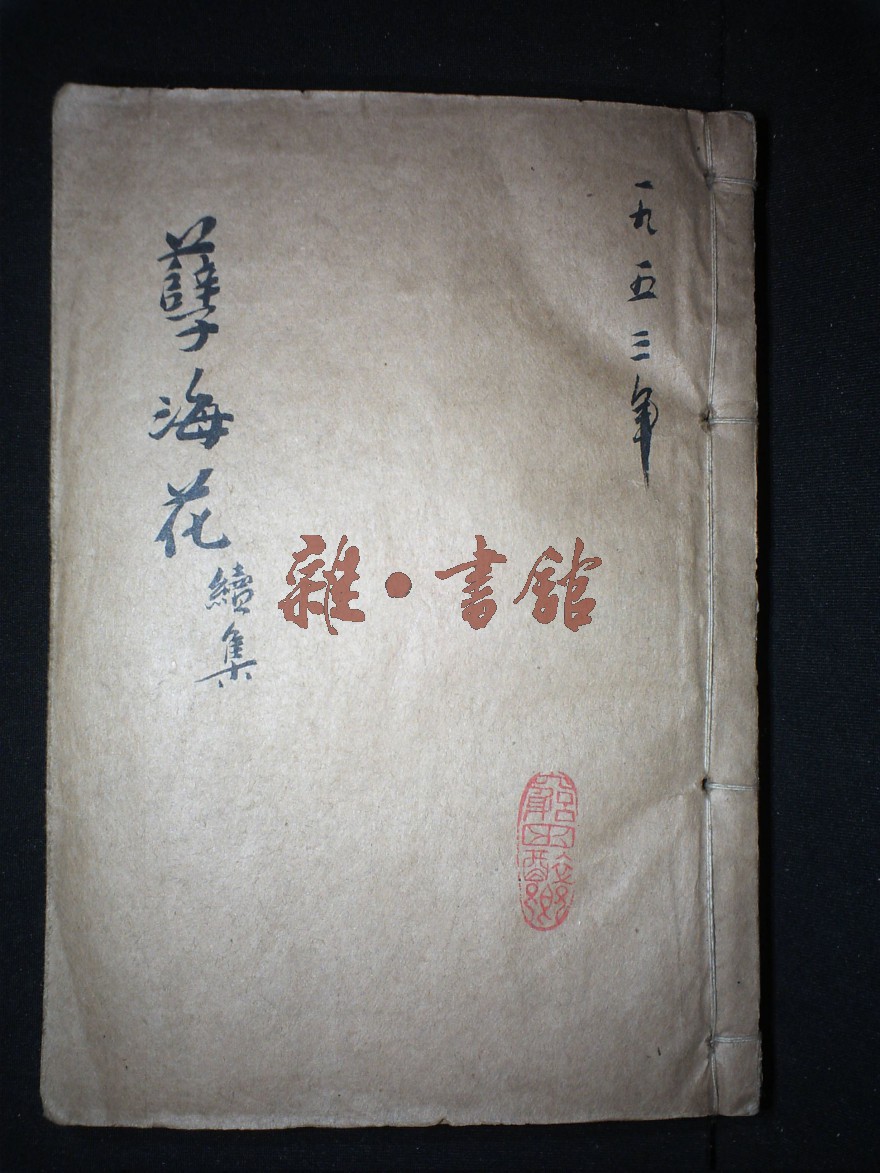 一九五三年
孽海花
續集
雜·書館